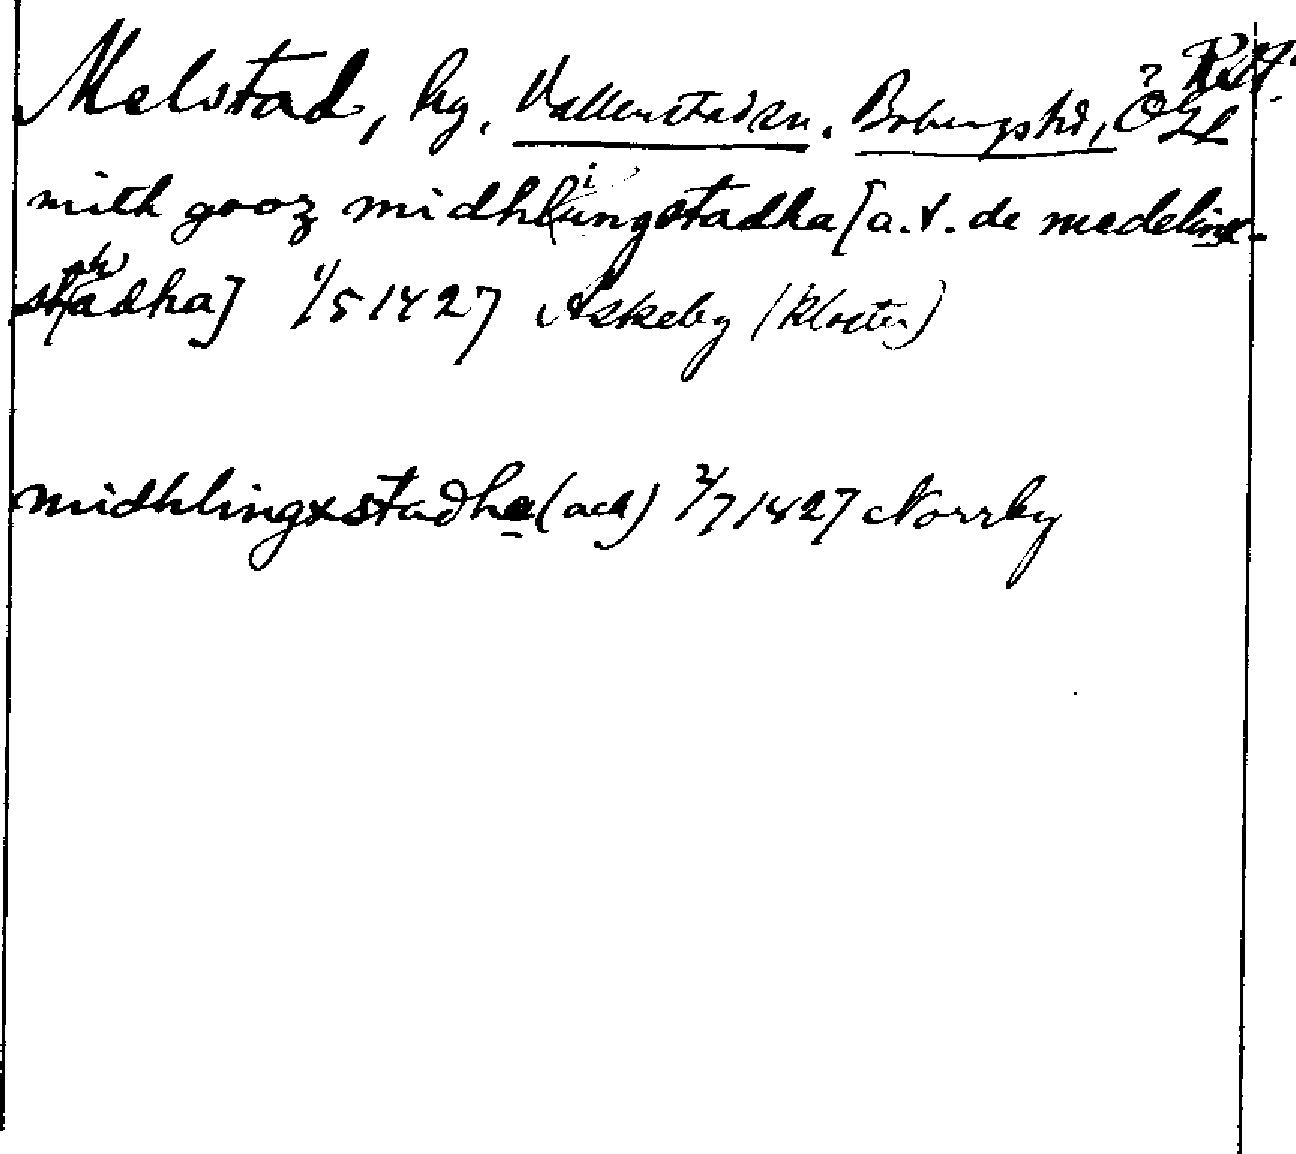 Melstad, hg. Vallerstad sn. Bobergs hd, ÖGL
mith gooz midhlingstadha [a.t. de medelinx-
stadha] 1/5 1427 Askeby (kloster)
midhlingxstadha (ack) 2/7 1427 Norrby